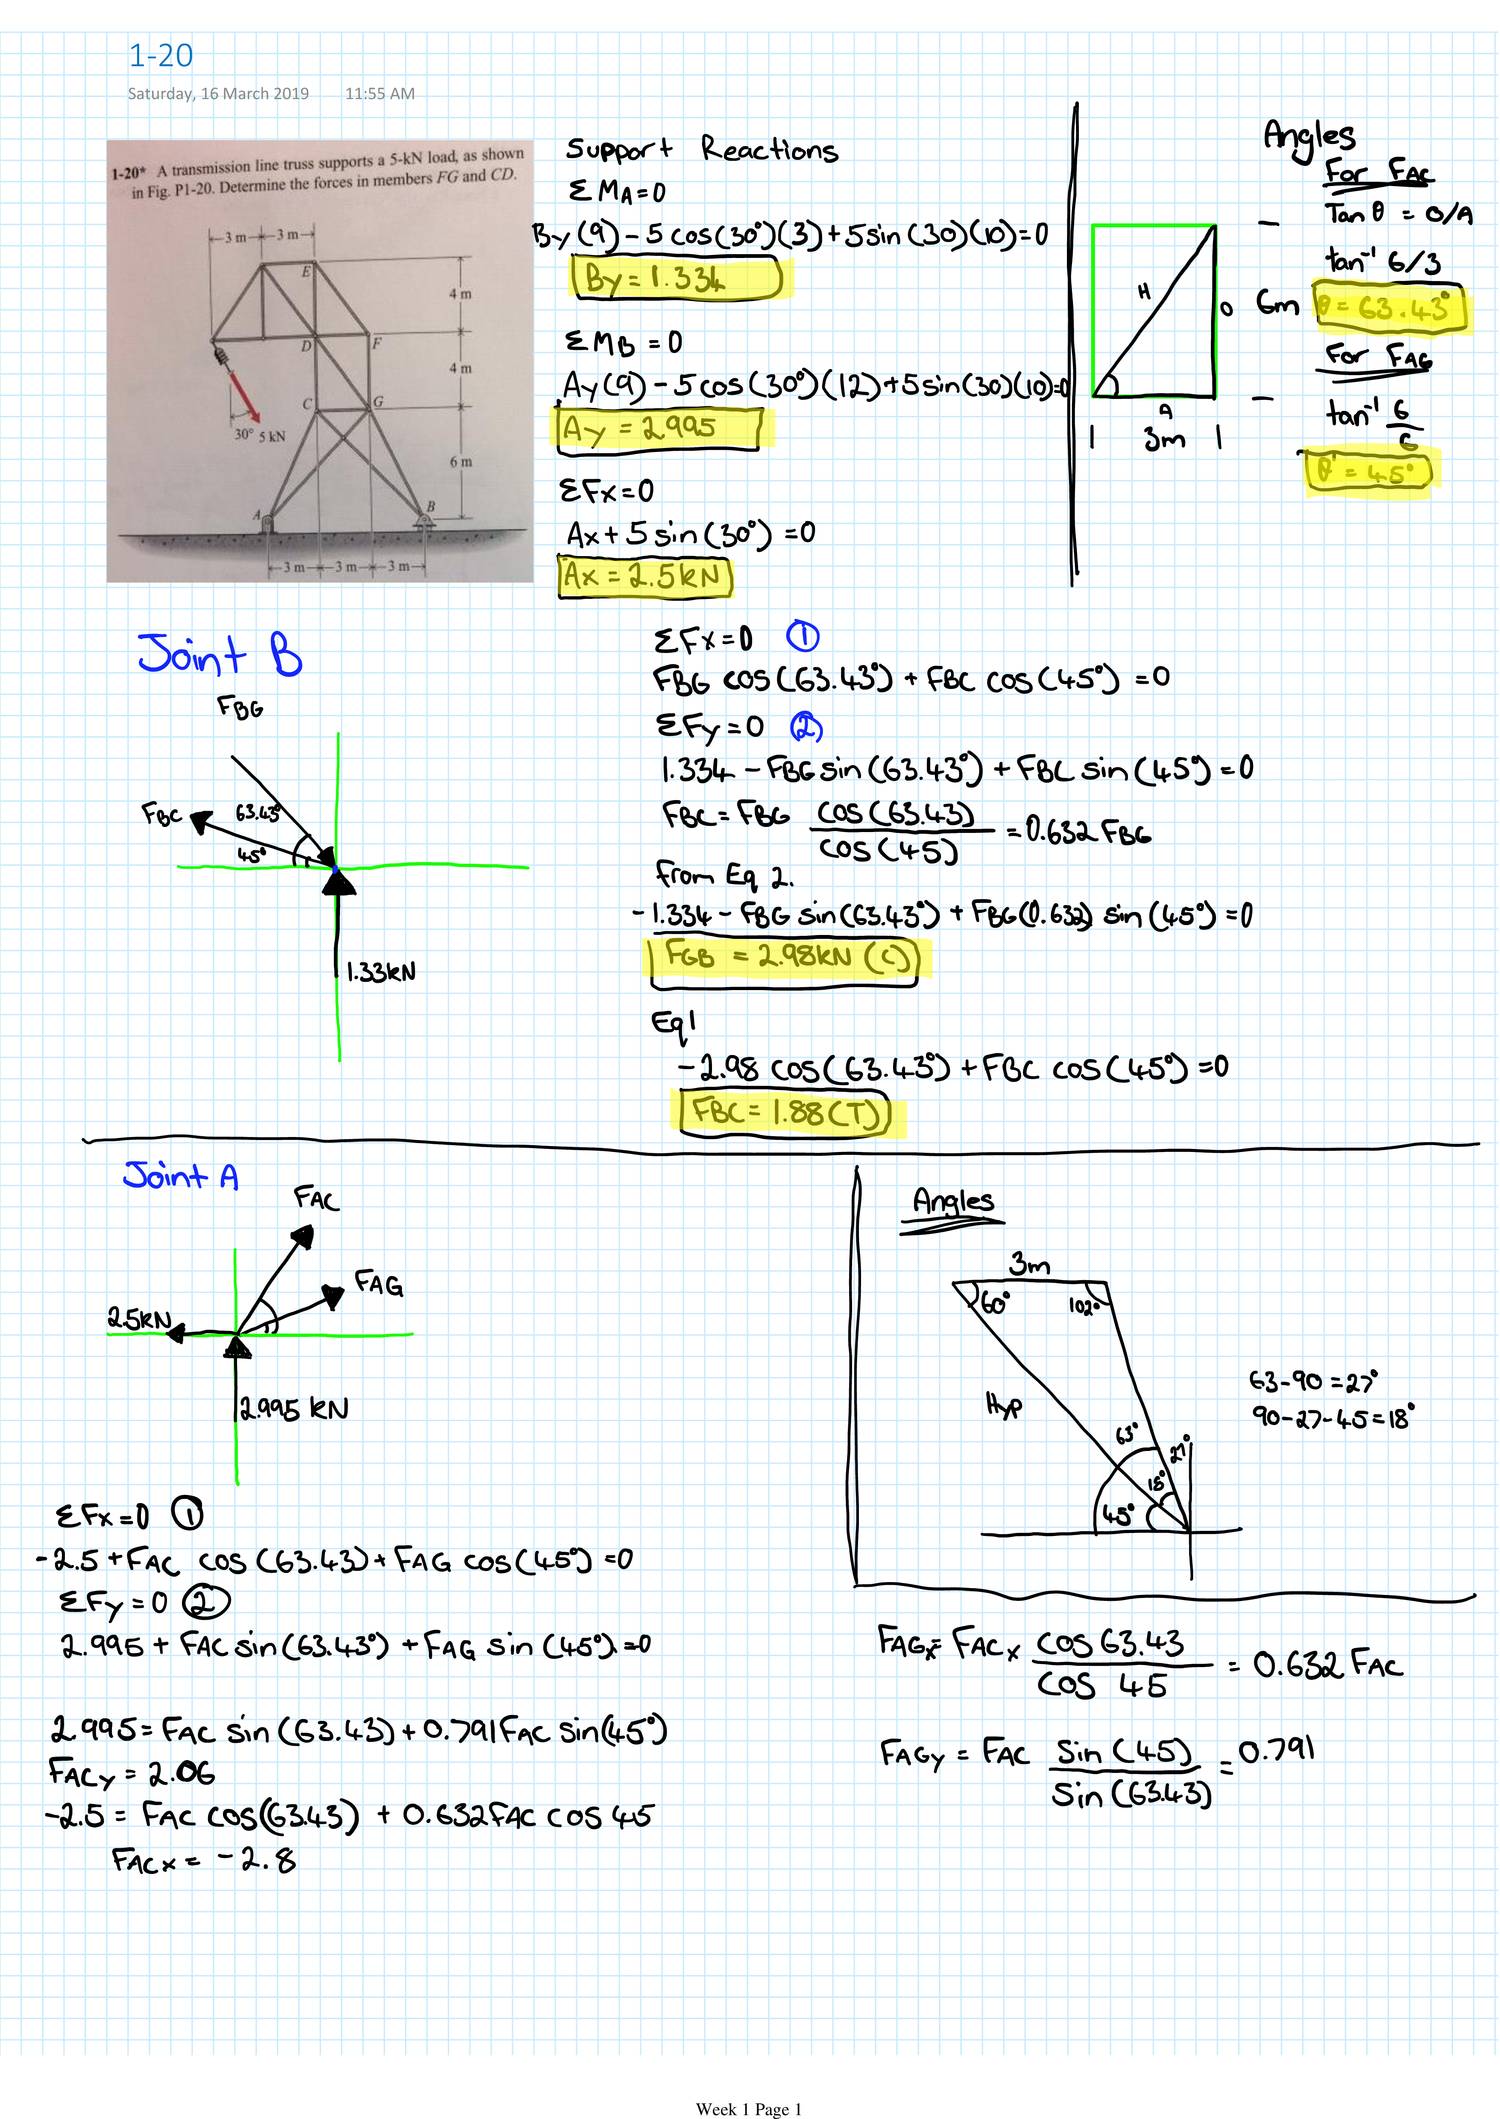 1-20
Saturday, 16 March 2019 11:55 AM
1-20* A transmission line truss supports a 5-kN load, as shown
in Fig. P1-20. Determine the forces in members FG and CD.
3 m 3 m
E
4 m
D F
4 m
C G
30° 5 kN
6 m
A B
3 m 3 m 3 m
Support Reactions
ΣMA=0
By(9) - 5 cos(30°)(3) + 5 sin(30)(10) = 0
By = 1.334
ΣMB = 0
Ay(9) - 5 cos(30°)(12) + 5 sin(30)(10) = 0
Ay = 2.995
ΣFx=0
Ax + 5 sin(30°) = 0
Ax = 2.5kN
Angles
For FAC
Tan θ = O/A
tan⁻¹ 6/3
θ = 63.43°
For FAG
tan⁻¹ 6/6
θ = 45°
H
O 6m
A
3m
Joint B
FBG
FBC 63.43°
45°
1.33kN
ΣFx=0 ①
FBG cos(63.43°) + FBC cos(45°) = 0
ΣFy=0 ②
1.334 - FBG sin(63.43°) + FBC sin(45°) = 0
FBC = FBG cos(63.43)/cos(45) = 0.632 FBG
from Eq 2.
-1.334 - FBG sin(63.43°) + FBG(0.632) sin(45°) = 0
FGB = 2.98kN (C)
Eq1
-2.98 cos(63.43°) + FBC cos(45°) = 0
FBC = 1.88(T)
Joint A
FAC
FAG
2.5kN
2.995 kN
ΣFx=0 ①
-2.5 + FAC cos(63.43) + FAG cos(45°) = 0
ΣFy = 0 ②
2.995 + FAC sin(63.43°) + FAG sin(45°) = 0
2.995 = FAC sin(63.43) + 0.791FAC sin(45°)
FACy = 2.06
-2.5 = FAC cos(63.43) + 0.632FAC cos 45
FACx = -2.8
Angles
3m
60° 102°
Hyp
63° 27°
18°
45°
63-90 = 27°
90-27-45 = 18°
FAGx = FACx cos 63.43/cos 45 = 0.632 FAC
FAGy = FAC sin(45)/sin(63.43) = 0.791
Week 1 Page 1